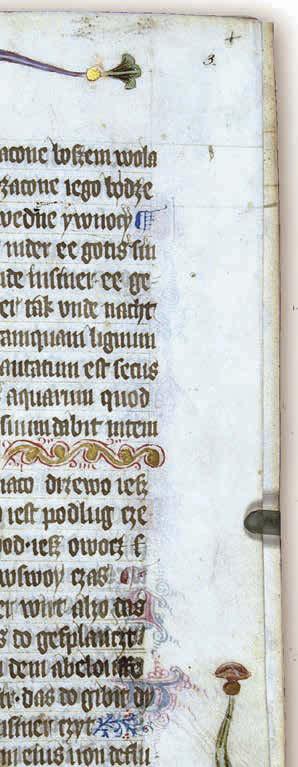 3.
acone boszem wola
zacone iego bodze
wedne ywnocy
nder ee gotis sin
nde insiner ee ge-
er tak vnde nacht
amquam lignum
antatum est secus
aquarum quod
suum dabit intem
iaco drzewo iesz
iest podlug cze
vod iesz owocz s
wswoy czas
er wirt alzo das
s do gesplanczt
dem abelouffe
das do gibit dy
siner czyt
m eius non deflu-